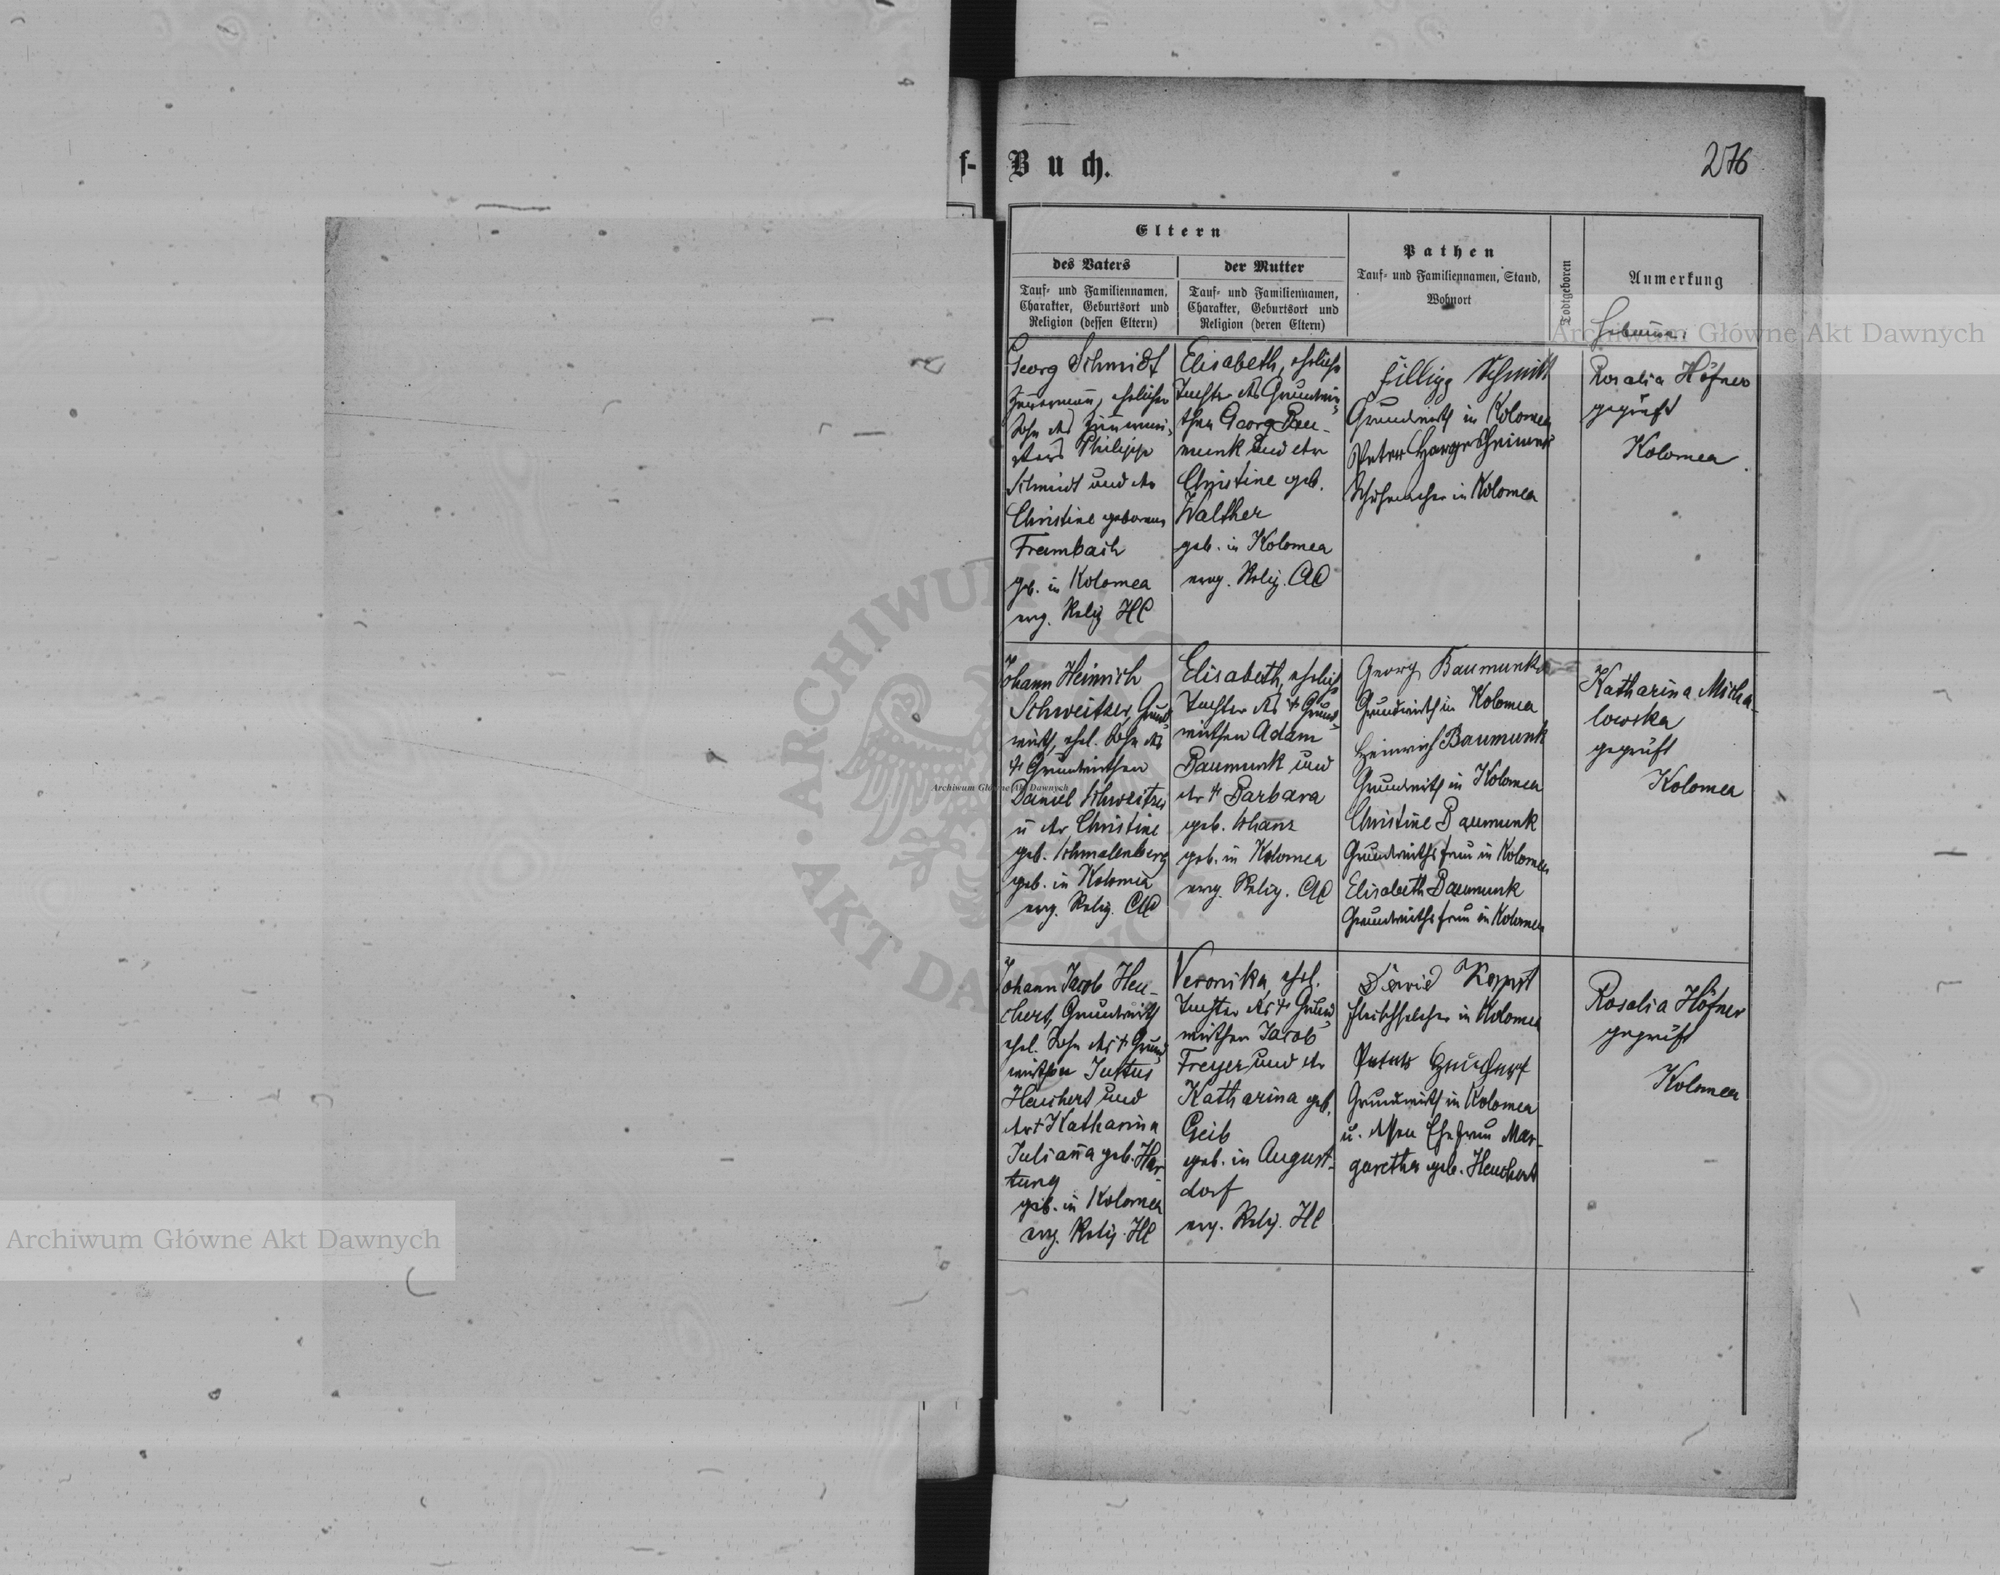 f-
Buch.
276
Eltern
des Vaters
Tauf- und Familiennamen,
Charakter, Geburtsort und
Religion (dessen Eltern)
der Mutter
Tauf- und Familiennamen,
Charakter, Geburtsort und
Religion (deren Eltern)
Pathen
Tauf- und Familiennamen, Stand,
Wohnort
Todtgeboren
Anmerkung
Georg Schmidt
ehelicher
Sohn des
Philipp
Schmidt und der
Christine geborene
Frambach
geb. in Kolomea
evg. Relig HC
Elisabeth, eheliche
Tochter des Grundwir-
then Georg Bau-
munk und der
Christine geb.
Walther
geb. in Kolomea
evg. Relig. AC
Fillipp Schmitt
Grundwirth in Kolomea
Peter Hargesheimer
Schuhmacher in Kolomea
Rosalia Höfner
geprüft
Kolomea
Johann Heinrich
Schweitzer, Grund-
wirth, ehel. Sohn des
† Grundwirthen
Daniel Schweitzer
u der Christine
geb. Schmalenberg
geb. in Kolomea
evg. Relig. AC
Elisabeth, eheliche
Tochter des † Grund-
wirthen Adam
Baumunk und
der † Barbara
geb.
geb. in Kolomea
evg. Relig. AC
Georg Baumunk
Grundwirth in Kolomea
Heinrich Baumunk
Grundwirth in Kolomea
Christine Baumunk
Grundwirthsfrau in Kolomea
Elisabeth Baumunk
Grundwirthsfrau in Kolomea
Katharina Micha-
lowska
geprüft
Kolomea
Johann Jacob Heu-
chert, Grundwirth
ehel. Sohn des † Grund-
wirthen Justus
Heuchert und
der † Katharina
Julianna geb. Har-
tung
geb. in Kolomea
evg. Relig. HC
Veronika, ehel.
Tochter des † Grund-
wirthen Jacob
Freyer und der
Katharina geb.
Geib
geb. in August-
dorf
evg. Relig. HC
David
Fleischselcher in Kolomea
Grundwirth in Kolomea
u. dessen Ehefrau Mar-
garetha geb. Heuchert
Rosalia Höfner
geprüft
Kolomea
Archiwum Główne Akt Dawnych
ARCHIWUM GŁÓWNE AKT DAWNYCH
Archiwum Główne Akt Dawnych
Archiwum Główne Akt Dawnych